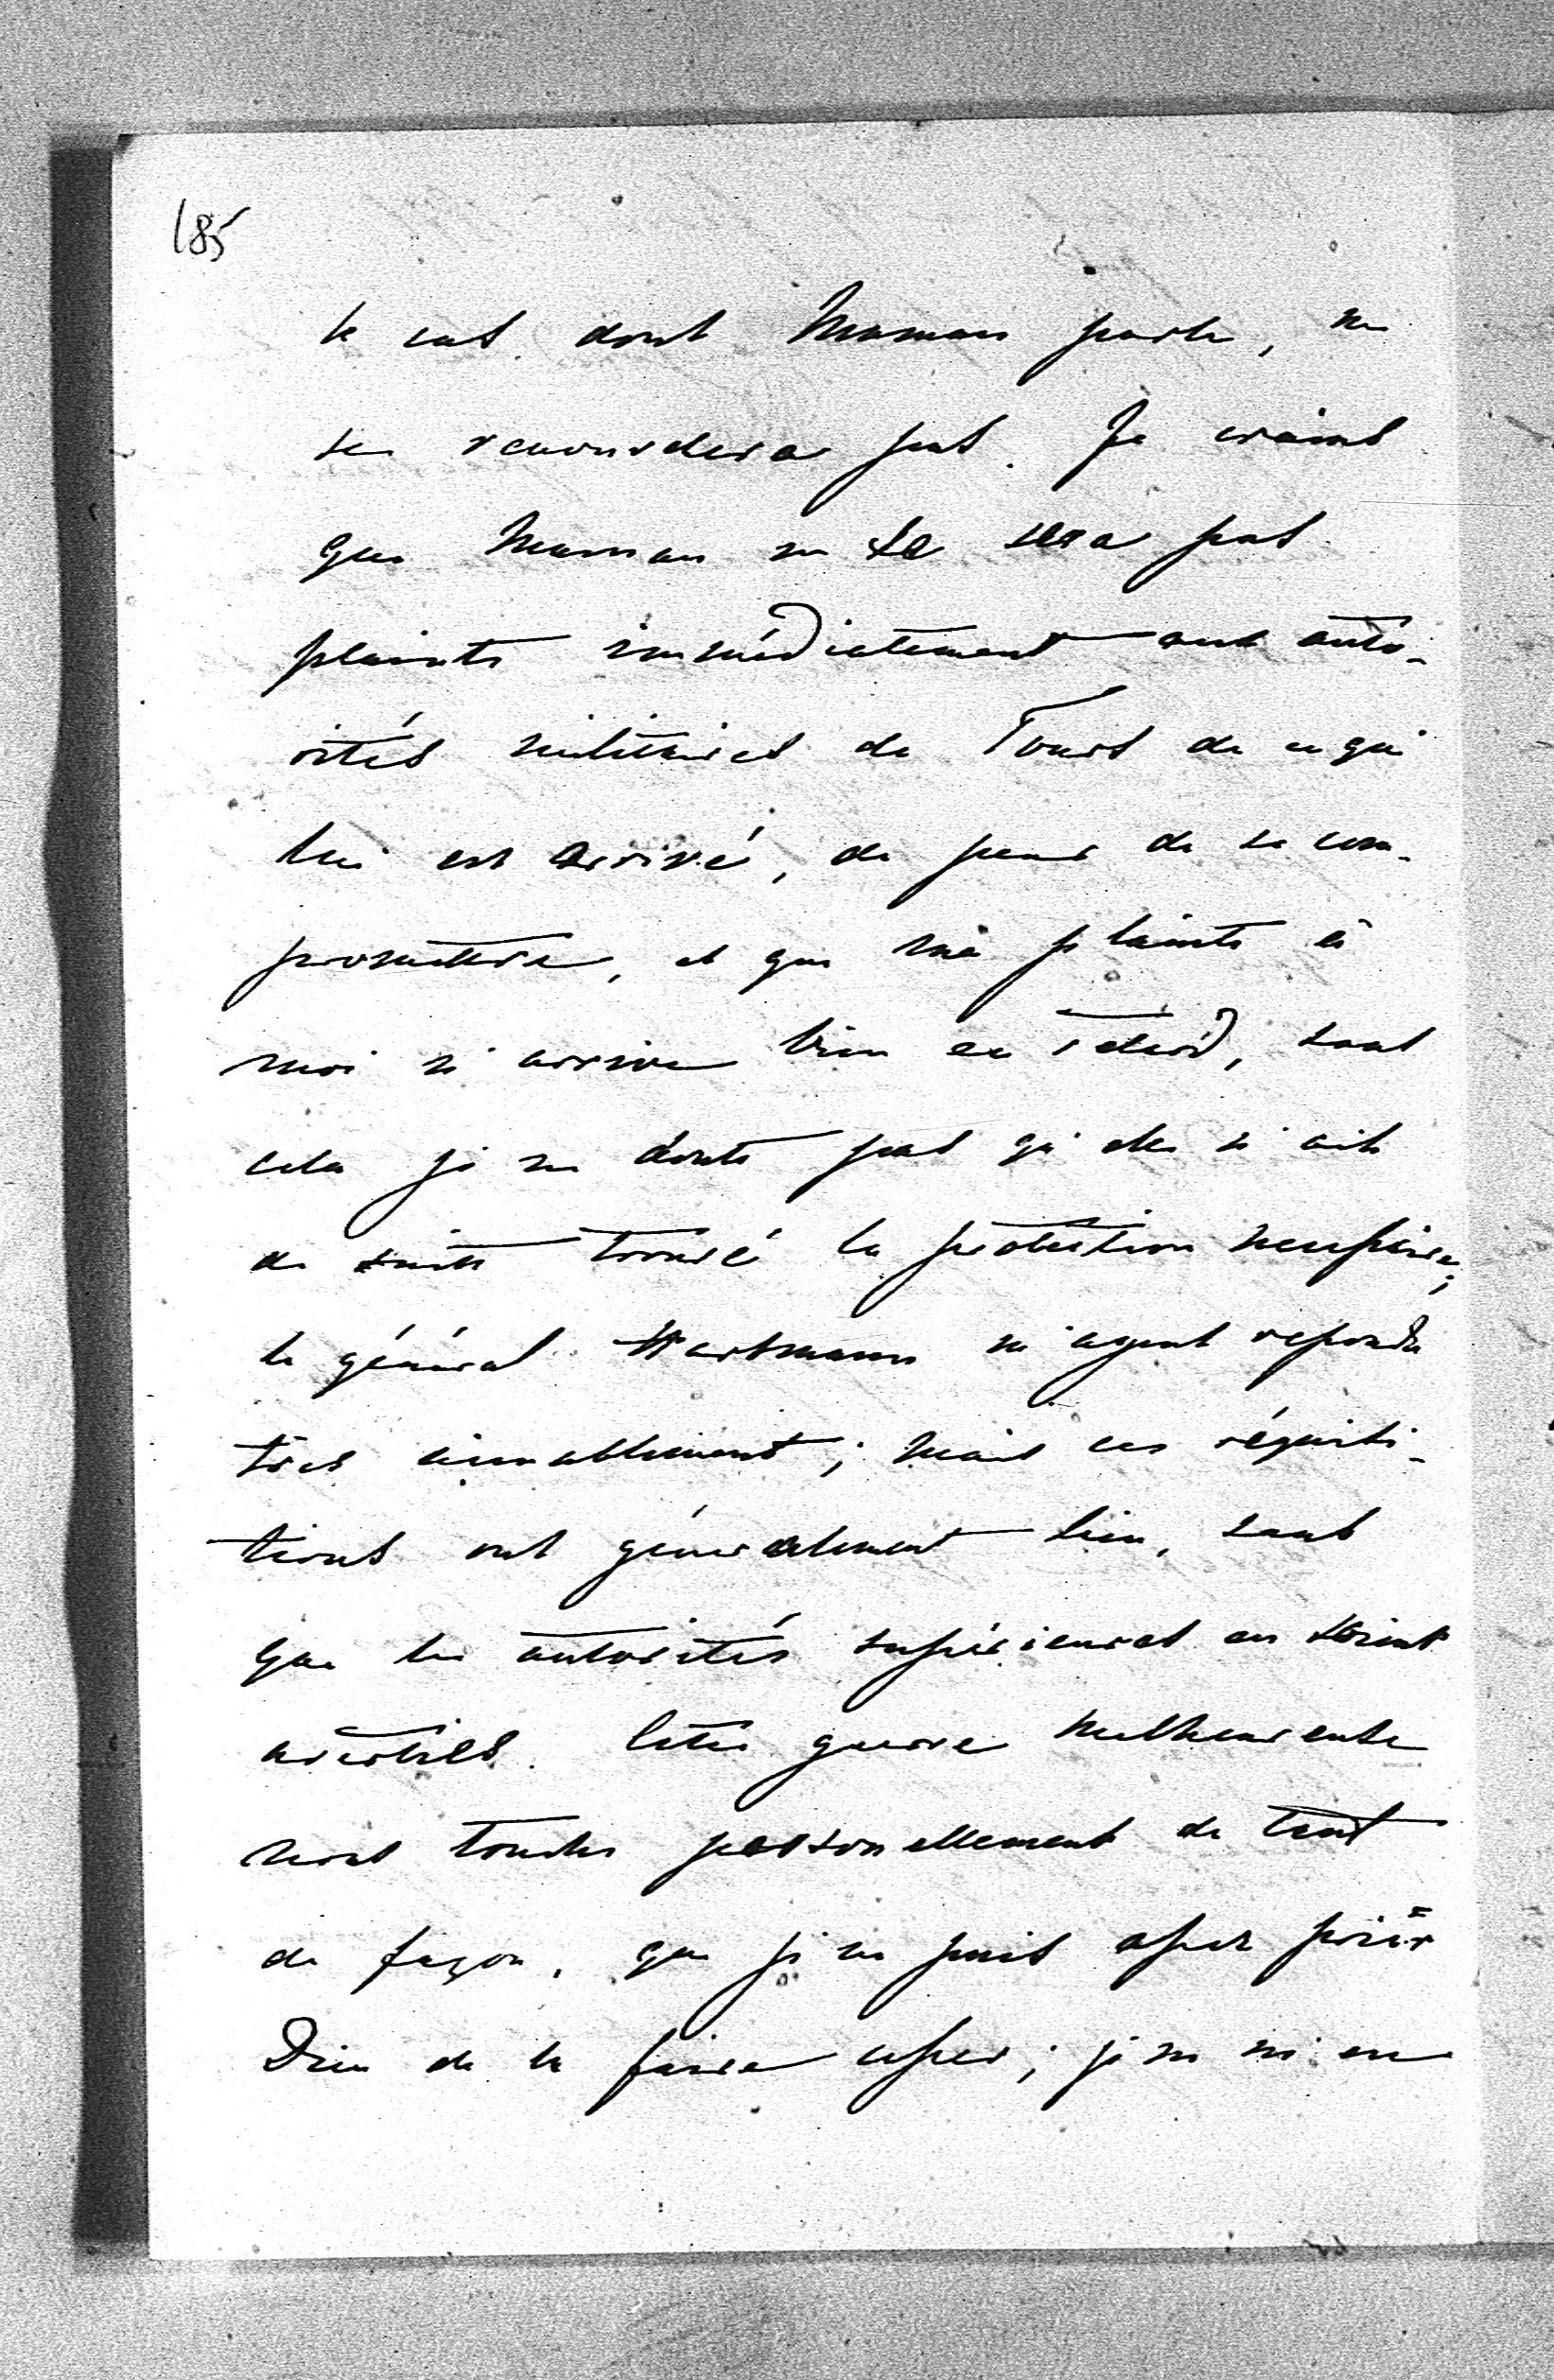 185
le cas dont Maman parle, ne
se renouvelera pas. Je crains
que Maman ne se sera pas
plainte immédiatement aux auto-
rités militaires de Tours de ce qui
lui est arrivé, de peur de se com-
promettre, et que sa plainte à
moi n'arrive bien en retard, sans
cela je ne doute pas qu'elle n'ait
de suite trouvé la protection nécessaire;
le général Hartmann m'ayant repondu
très aimablement; mais ces réquisi-
tions ont généralement lieu, sans
que les autorités supérieures en soient
averties. Cette guerre malheureuse
nous touche personellement de tant
de façon, que je ne puis assez prier
Dieu de la faire cesser; je ne m'en